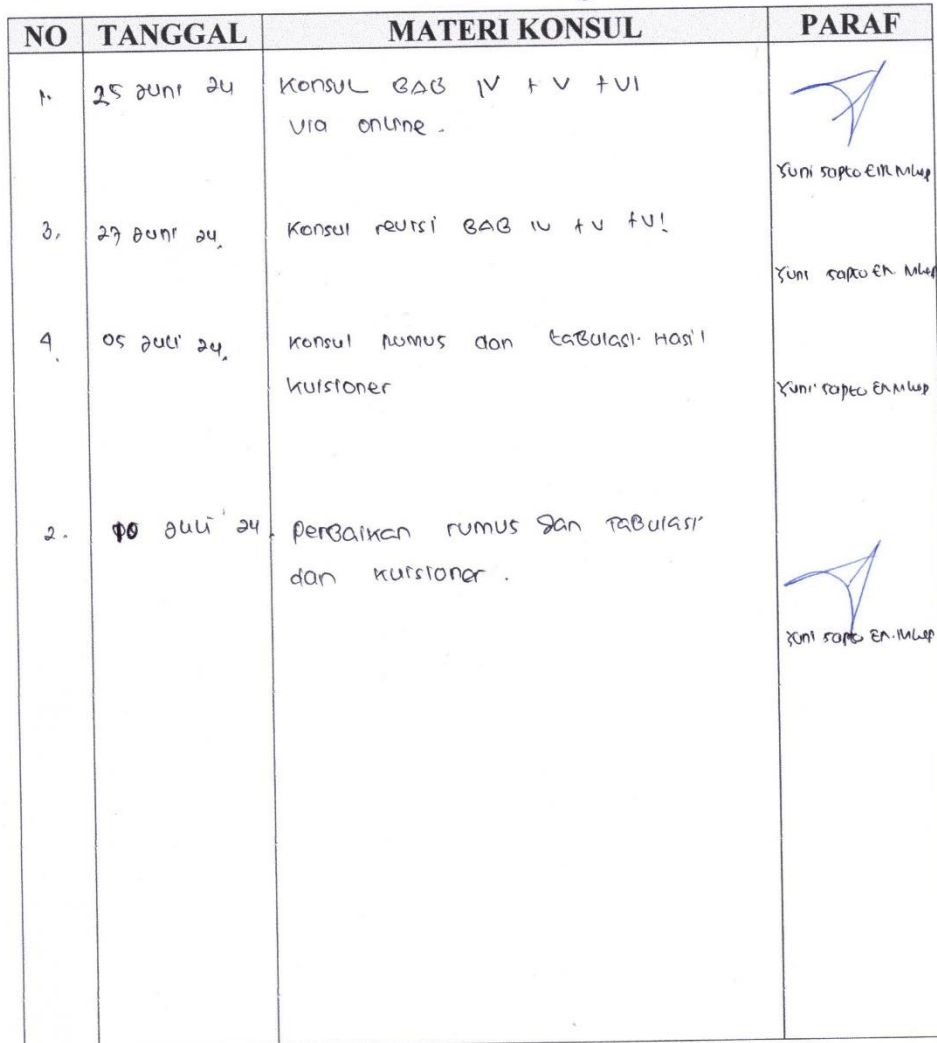 NO TANGGAL MATERI KONSUL PARAF
1. 25 Juni 24 Konsul BAB IV + V + VI
via online.
Yuni Sapto
3. 27 Juni 24. Konsul revisi BAB IV + V + VI
Yuni Sapto
4. 05 Juli 24. Konsul rumus dan taBulasi Hasil
kuisioner
Yuni Sapto
2. 10 Juli 24. PerBaikan rumus dan TaBulasi
dan kuisioner.
Yuni Sapto